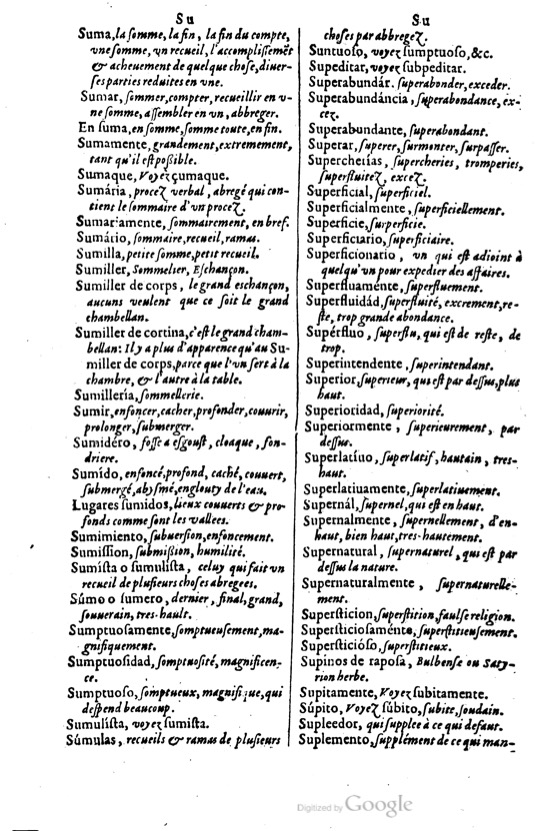 Su
Suma, la somme, la fin, la fin du compte,
vne somme, vn recueil, l'accomplissemēt
& acheuement de quelque chose, diuer-
ses parties reduites en vne.
Sumar, sommer, compter, recueillir en v-
ne somme, assembler en vn, abbreger.
En suma, en somme, somme toute, en fin.
Sumamente, grandement, extremement,
tant qu'il est possible.
Sumaque, Voyez çumaque.
Sumária, procez verbal, abregé qui con-
tient le sommaire d'vn procez.
Sumariamente, sommairement, en bref.
Sumário, sommaire, recueil, ramas.
Sumilla, petite somme, petit recueil.
Sumiller, Sommelier, Eschançon.
Sumiller de corps, le grand eschançon,
aucuns veulent que ce soit le grand
chambellan.
Sumiller de cortina, c'est le grand cham-
bellan: Il y a plus d'apparence qu'au Su-
miller de corps, parce que l'vn sert à la
chambre, & l'autre à la table.
Sumillería, sommellerie.
Sumir, enfoncer, cacher, profonder, couurir,
prolonger, submerger.
Sumidéro, fosse a esgoust, cloaque, fon-
driere.
Sumído, enfoncé, profond, caché, couuert,
submergé, abysmé, englouty de l'eau.
Lugares sumidos, lieux couuerts & pro-
fonds comme sont les vallees.
Sumimiento, subuersion, enfoncement.
Sumission, submission, humilité.
Sumista o sumulista, celuy qui fait vn
recueil de plusieurs choses abregees.
Súmo o sumero, dernier, final, grand,
souuerain, tres-hault.
Sumptuosamente, somptueusement, ma-
gnifiquement.
Sumptuosidad, somptuosité, magnificen-
ce.
Sumptuoso, somptueux, magnifique, qui
despend beaucoup.
Sumulísta, voyez sumista.
Súmulas, recueils & ramas de plusieurs
Su
choses par abbregez.
Suntuoso, voyez sumptuoso, &c.
Supeditar, voyez subpeditar.
Superabundár, superabonder, exceder.
Superabundáncia, superabondance, ex-
cez.
Superabundante, superabondant.
Superar, superer, surmonter, surpasser.
Supercherías, supercheries, tromperies,
superfluitez, excez.
Superficial, superficiel.
Superficialmente, superficiellement.
Superficie, surperficie.
Superficiario, superficiaire.
Superficionario, vn qui est adioint à
quelqu'vn pour expedier des affaires.
Superfluaménte, superfluement.
Superfluidád, superfluité, excrement, re-
ste, trop grande abondance.
Supérfluo, superflu, qui est de reste, de
trop.
Superintendente, superintendant.
Superior, superieur, qui est par dessus, plus
haut.
Superioridad, superiorité.
Superiormente, superieurement, par
dessus.
Superlatiuo, superlatif, hautain, tres-
haut.
Superlatiuamente, superlatiuement.
Supernál, supernel, qui est en haut.
Supernalmente, supernellement, d'en-
haut, bien haut, tres-hautement.
Supernatural, supernaturel, qui est par
dessus la nature.
Supernaturalmente, supernaturelle-
ment.
Supersticion, superstition, faulse religion.
Supersticiosaménte, superstitieusement.
Supersticióso, superstitieux.
Supinos de raposa, Bulbense ou Saty-
rion herbe.
Supitamente, Voyez subitamente.
Súpito, Voyez súbito, subite, soudain.
Supleedor, qui supplee à ce qui defaut.
Suplemento, supplément de ce qui man-
Digitized by Google